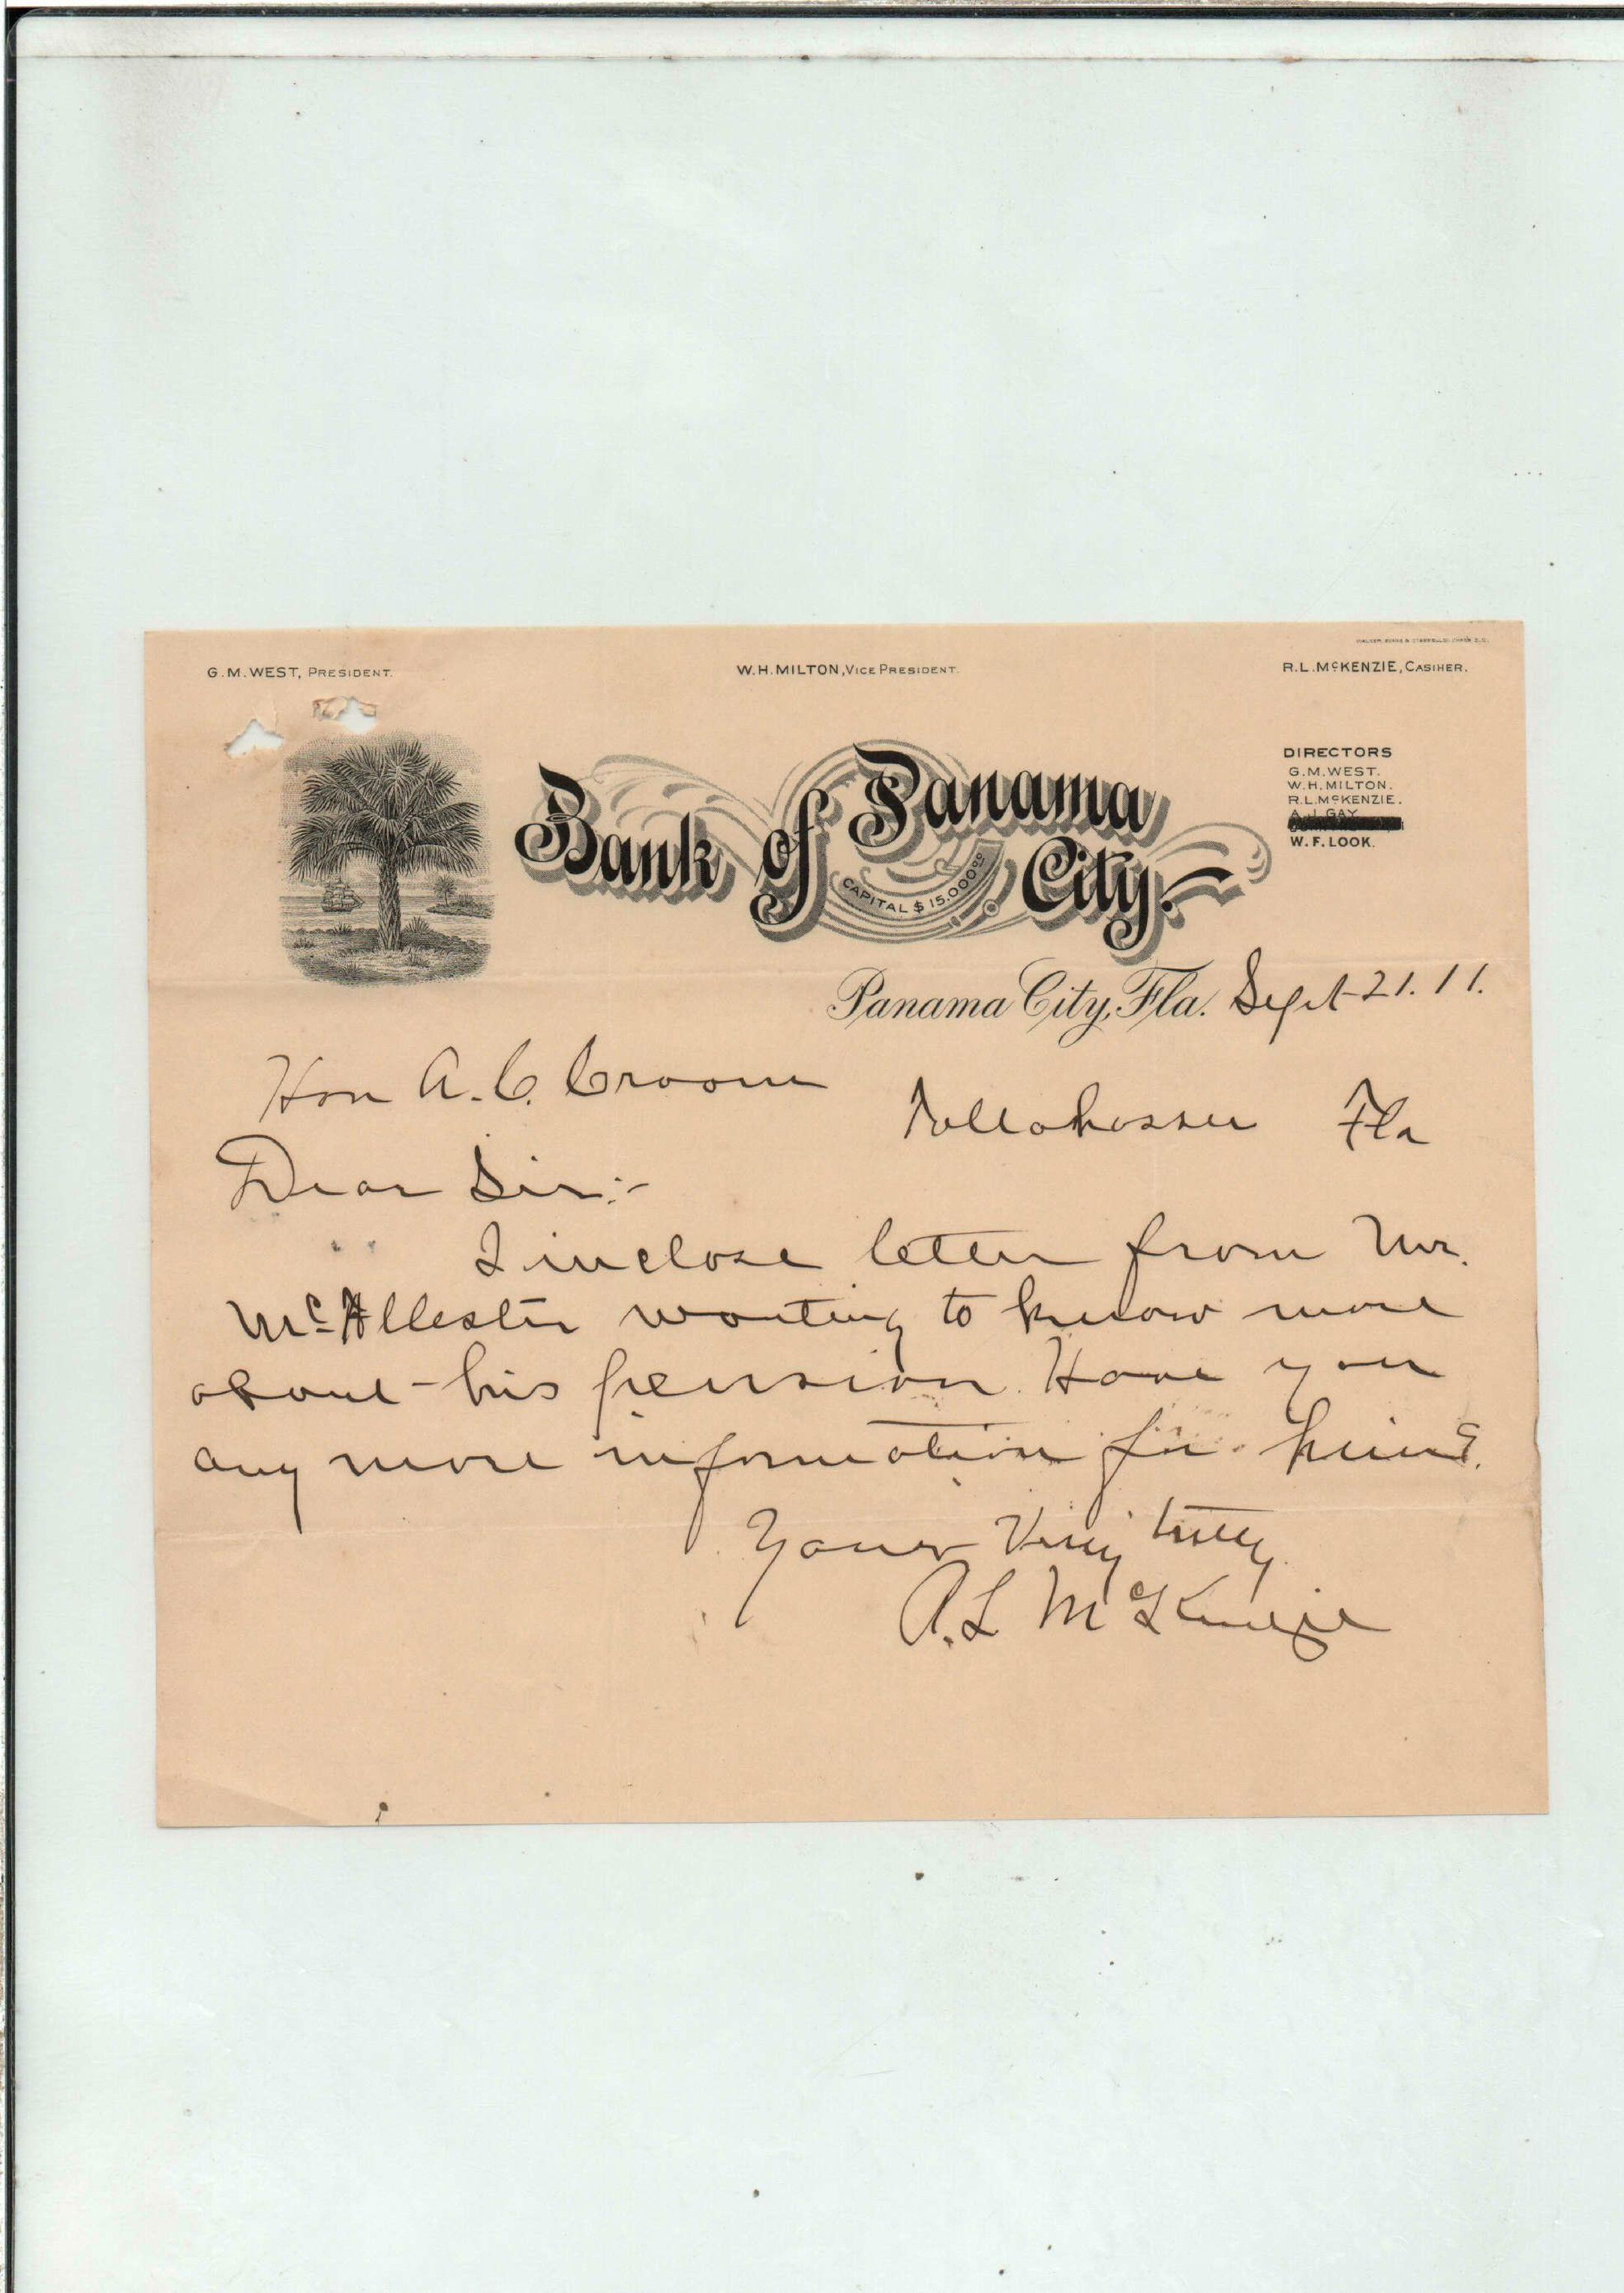 G. M. WEST, PRESIDENT.
W. H. MILTON, VICE PRESIDENT.
R. L. McKENZIE, CASIHER.
DIRECTORS
G. M. WEST.
W. H. MILTON.
R. L. McKENZIE.
A. J. GAY
W. F. LOOK.
Bank of Panama City.
CAPITAL $ 15,000.00
Panama City, Fla. Sept 21. 11.
Hon A. C. Croom
Tallahassee Fla
Dear Sir:-
I inclose letter from Mr.
McAllester wanting to know more
about his pension. Have you
any more information for him?
Yours Very truly
R. L McKenzie